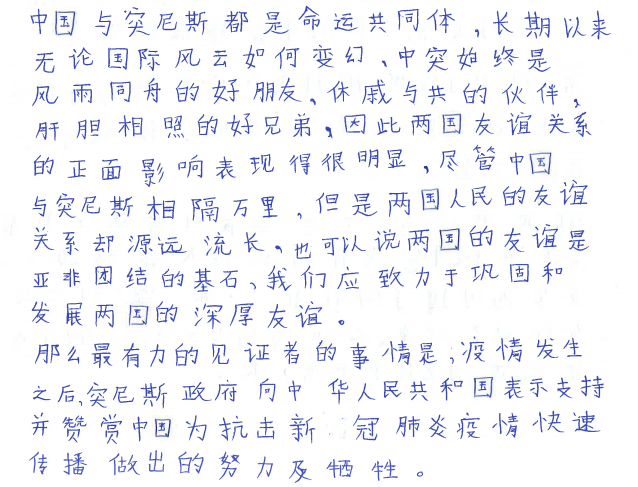 中国与突尼斯都是命运共同体,长期以来
无论国际风云如何变幻、中突始终是
风雨同舟的好朋友、休戚与共的伙伴、
肝胆相照的好兄弟,因此两国友谊关系
的正面影响表现得很明显,尽管中国
与突尼斯相隔万里,但是两国人民的友谊
关系却源远流长,也可以说两国的友谊是
亚非团结的基石、我们应致力于巩固和
发展两国的深厚友谊。
那么最有力的见证者的事情是;疫情发生
之后,突尼斯政府向中华人民共和国表示支持
并赞赏中国为抗击新冠肺炎疫情快速
传播做出的努力及牺牲。